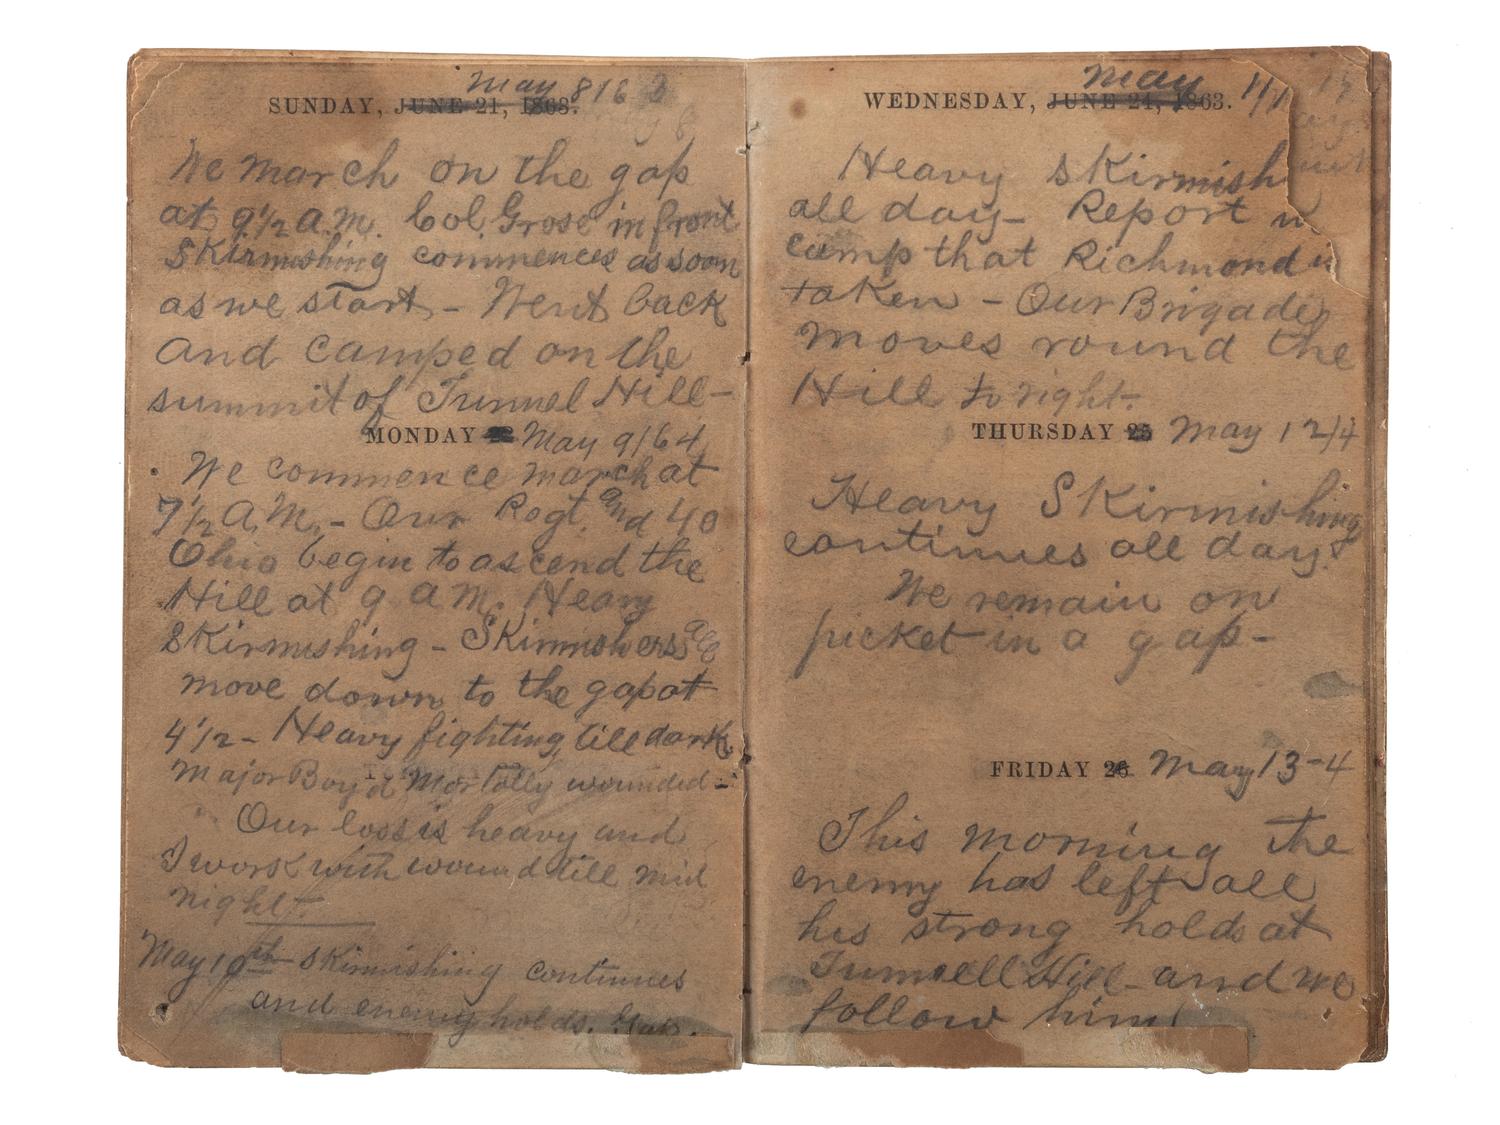 SUNDAY, JUNE 21, 1863. May 8 16
We march on the gap
at 9 1/2 A.M. Col. Grose in front
Skirmishing commences as soon
as we start - Went back
and camped on the
summit of Tunnel Hill -
MONDAY 22 May 9/64
We commence march at
7 1/2 A.M. - Our Regt. and 40
Ohio begin to ascend the
Hill at 9 A M. Heavy
Skirmishing - Skirmishers
move down to the gap at
4 1/2 - Heavy fighting till dark
Major Boyd Mortally wounded -
Our loss is heavy and
I work with wound till mid
night.
May 10th Skirmishing continues
and enemy holds. Gap.
WEDNESDAY, JUNE 24, 1863. May 11/
Heavy Skirmish
all day - Report in
camp that Richmond is
taken - Our Brigade
moves round the
Hill to right.
THURSDAY 25 May 12/4
Heavy Skirmishing
continues all day
We remain on
picket in a gap -
FRIDAY 26 May 13-4
This morning the
enemy has left all
his strong holds at
Tunnell Hill - and we
follow him